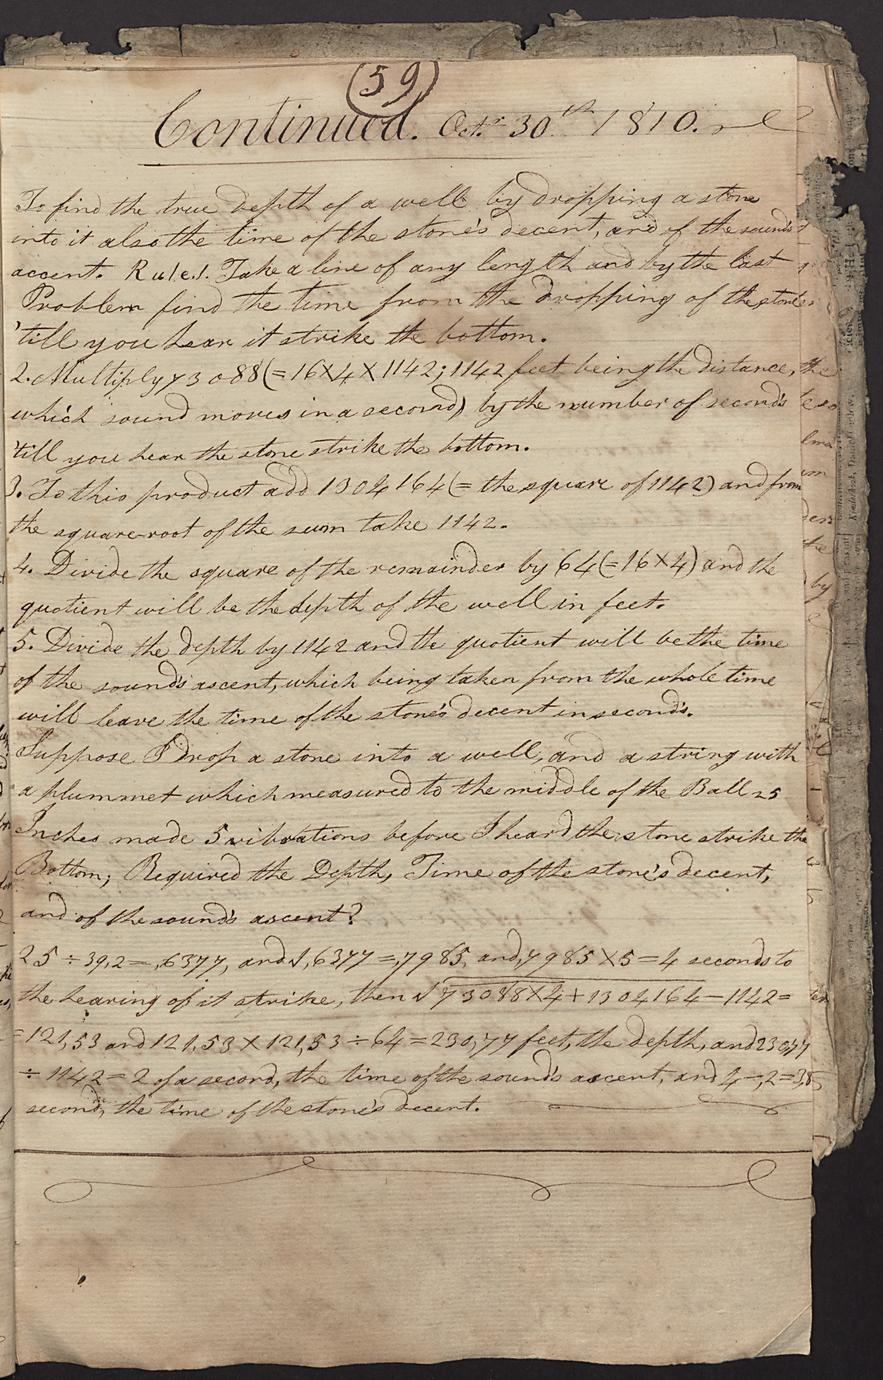 (59)
Continued. Oct.r 30.th 1810.
To find the true depth of a well by dropping a stone
into it also the time of the stone's decent, and of the sound's
accent. Rule 1. Take a line of any length and by the last
Problem find the time from the dropping of the stone
'till you hear it strike the bottom.
2. Multiply 73088 (=16×4×1142; 1142 feet being the distance,
which sound moves in a second) by the number of second's
'till you hear the stone strike the bottom.
3. To this product add 1304164 (= the square of 1142) and from
the square-root of the sum take 1142.
4. Divide the square of the remainder by 64 (=16×4) and the
quotient will be the depth of the well in feet.
5. Divide the depth by 1142 and the quotient will be the time
of the sound's ascent, which being taken from the whole time
will leave the time of the stone's decent in second's.
Suppose I drop a stone into a well, and a string with
a plummet which measured to the middle of the Ball 25
Inches made 5 vibrations before I heard the stone strike the
Bottom; Required the Depth, Time of the stone's decent,
and of the sound's ascent?
25 ÷ 39,2 = ,6377, and √,6377 = ,7985, and ,7985 × 5 = 4 seconds to
the hearing of it strike, then √73088×4+1304164 − 1142 =
= 121,53 and 121,53 × 121,53 ÷ 64 = 230,77 feet, the depth, and 230,77
÷ 1142 = 2 of a second, the time of the sound's ascent, and 4 − ,2 = 3,8
second, the time of the stone's decent.